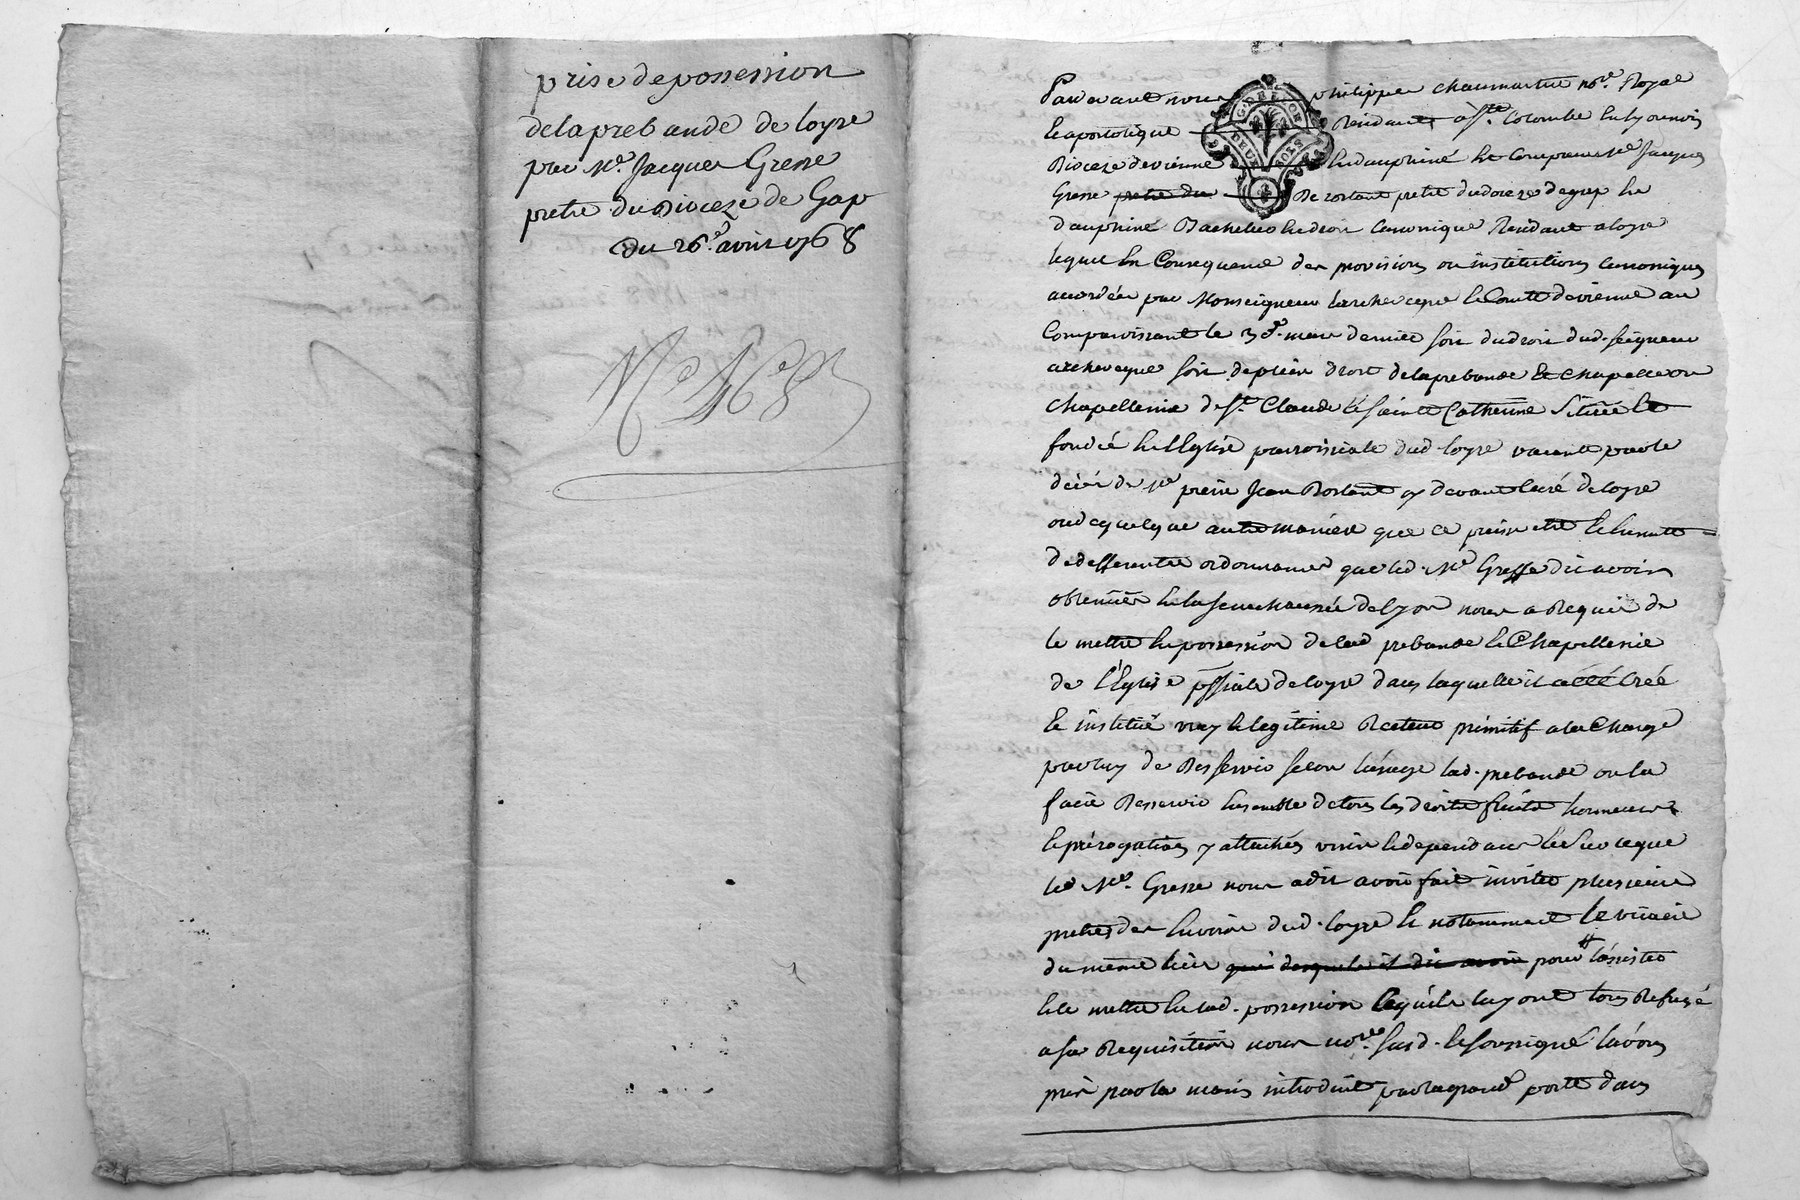 prise de possession
de la prebande de loyre
par Me. Jacques Gresse
pretre du Dioceze de Gap
du 26e. avril 1768
Pardevant nous philippe chaumartin nore. Royal
et apostolique Residant à Ste. Colombe en lyonnois
Dioceze de vienne en dauphiné est comparu Me Jacques
Gresse pretre du De rostant pretre du dioceze de gap en
dauphiné Bachelier en droit canonique Residant a loyre
lequel en Consequence des provisions ou institutions canoniques
accordées par Monseigneur l'archeveque et Comte de vienne au
Comparoissant le 30e. mars dernier soit du droit dud. seigneur
archeveque soit de plein droit de la prebande et chapelle ou
chapellenie de St. Claude et sainte Catherine située et
fondée en l'Eglise parroissiale dud. loyre vacante par le
décés de Me pierre Jean Rostant cy devant curé de loyre
ou de quelque autre maniere que ce puisse etre et ensuitte
de differentes ordonnances que led. Me Gresse dit avoir
obtenües en la senechaussée de lyon nous a Requis de
le mettre en possession de lad. prebande et Chapellenie
de l'Eglise pssiale de loyre dans laquelle il a été Créé
et institué vray et legitime Recteur primitif a la Charge
par luy de desservir selon l'usage lad. prebande ou la
faire desservir ensemble de tous les droits fruits honneurs
et prérogatives y attachés unis et dependants et sur ce que
led. Me. Gresse nous a dit avoir fait inviter plusieurs
pretres des environs dud. loyre et notamment le vicaire
du même lieu quil desquels il dit avoir pour l'assister
et le mettre en lad. possession lesquels luy ont tous Refusé
a sa Requisition nous nore. susd. et soussigné l'avons
pris par la main introduit par la grande porte dans